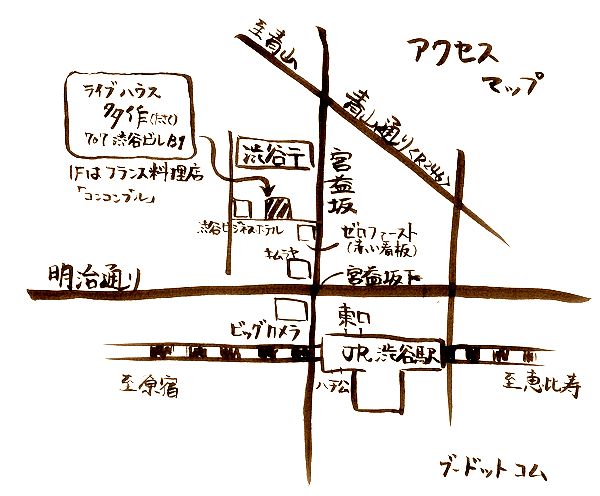 至青山
アクセス
マップ
青山通り(R246)
ライブハウス
渋谷ビルB1
1Fはフランス料理店
「コンコンブル」
渋谷〒
宮益坂
渋谷ビジネスホテル
ゼロファースト
(赤い看板)
キムラヤ
明治通り
宮益坂下
ビックカメラ
東口
JR渋谷駅
ハチ公
至原宿
至恵比寿
ブードットコム